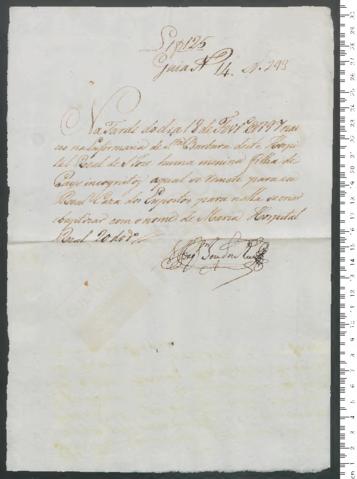 L 1º 125
Guia Nº 14. N. 293
Na Tarde do dia 18 de Fevrº de 1797 nas
ceo na Infermaria de Sta Barbara deste Hospi
tal Real de S. Jose huma menina filha de
Pays incognitos, a qual se remete para a
Real Caza dos Expostos para nella se criar
baptizar com o nome de Maria Hospital
Real 20 de dº